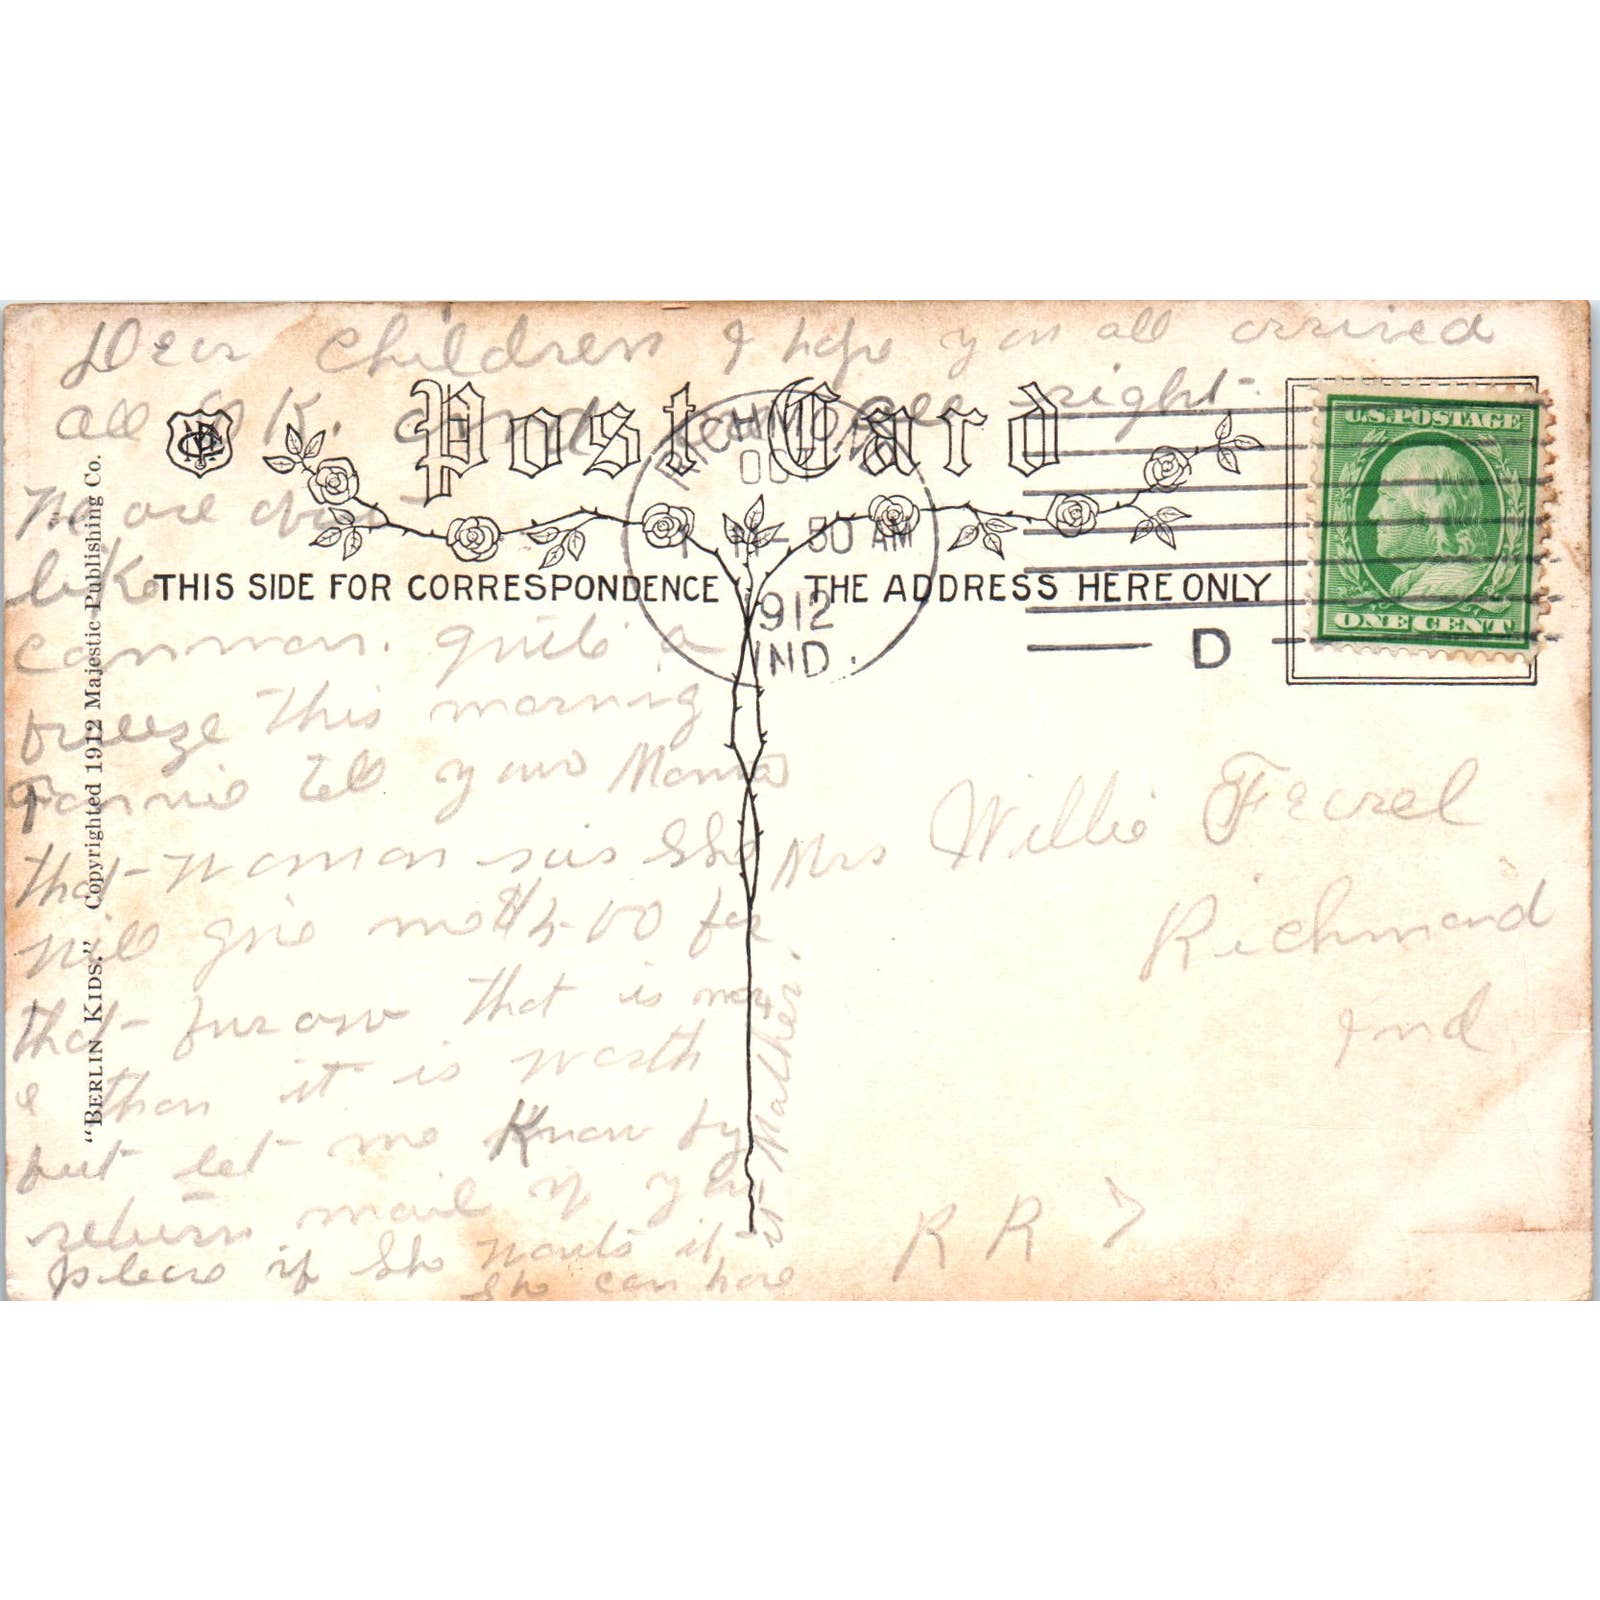 Dear Children I hope you all arrived
all O K. and home all right.
We are
like
common. quite a
breeze this morning
Fannie tell your Mama
that woman sais She
will give me 00 for
that that is mor
e than it is worth
but let me Know by
return mail if you
please if She wants it
She can have
it Mother.
Post Card
THIS SIDE FOR CORRESPONDENCE
THE ADDRESS HERE ONLY
RICHMOND
OC
1 - 30 AM
1912
IND.
D
U.S. POSTAGE
ONE CENT
Mrs Willie
Richmond
Ind
R R 7
"BERLIN KIDS." Copyrighted 1912 Majestic Publishing Co.